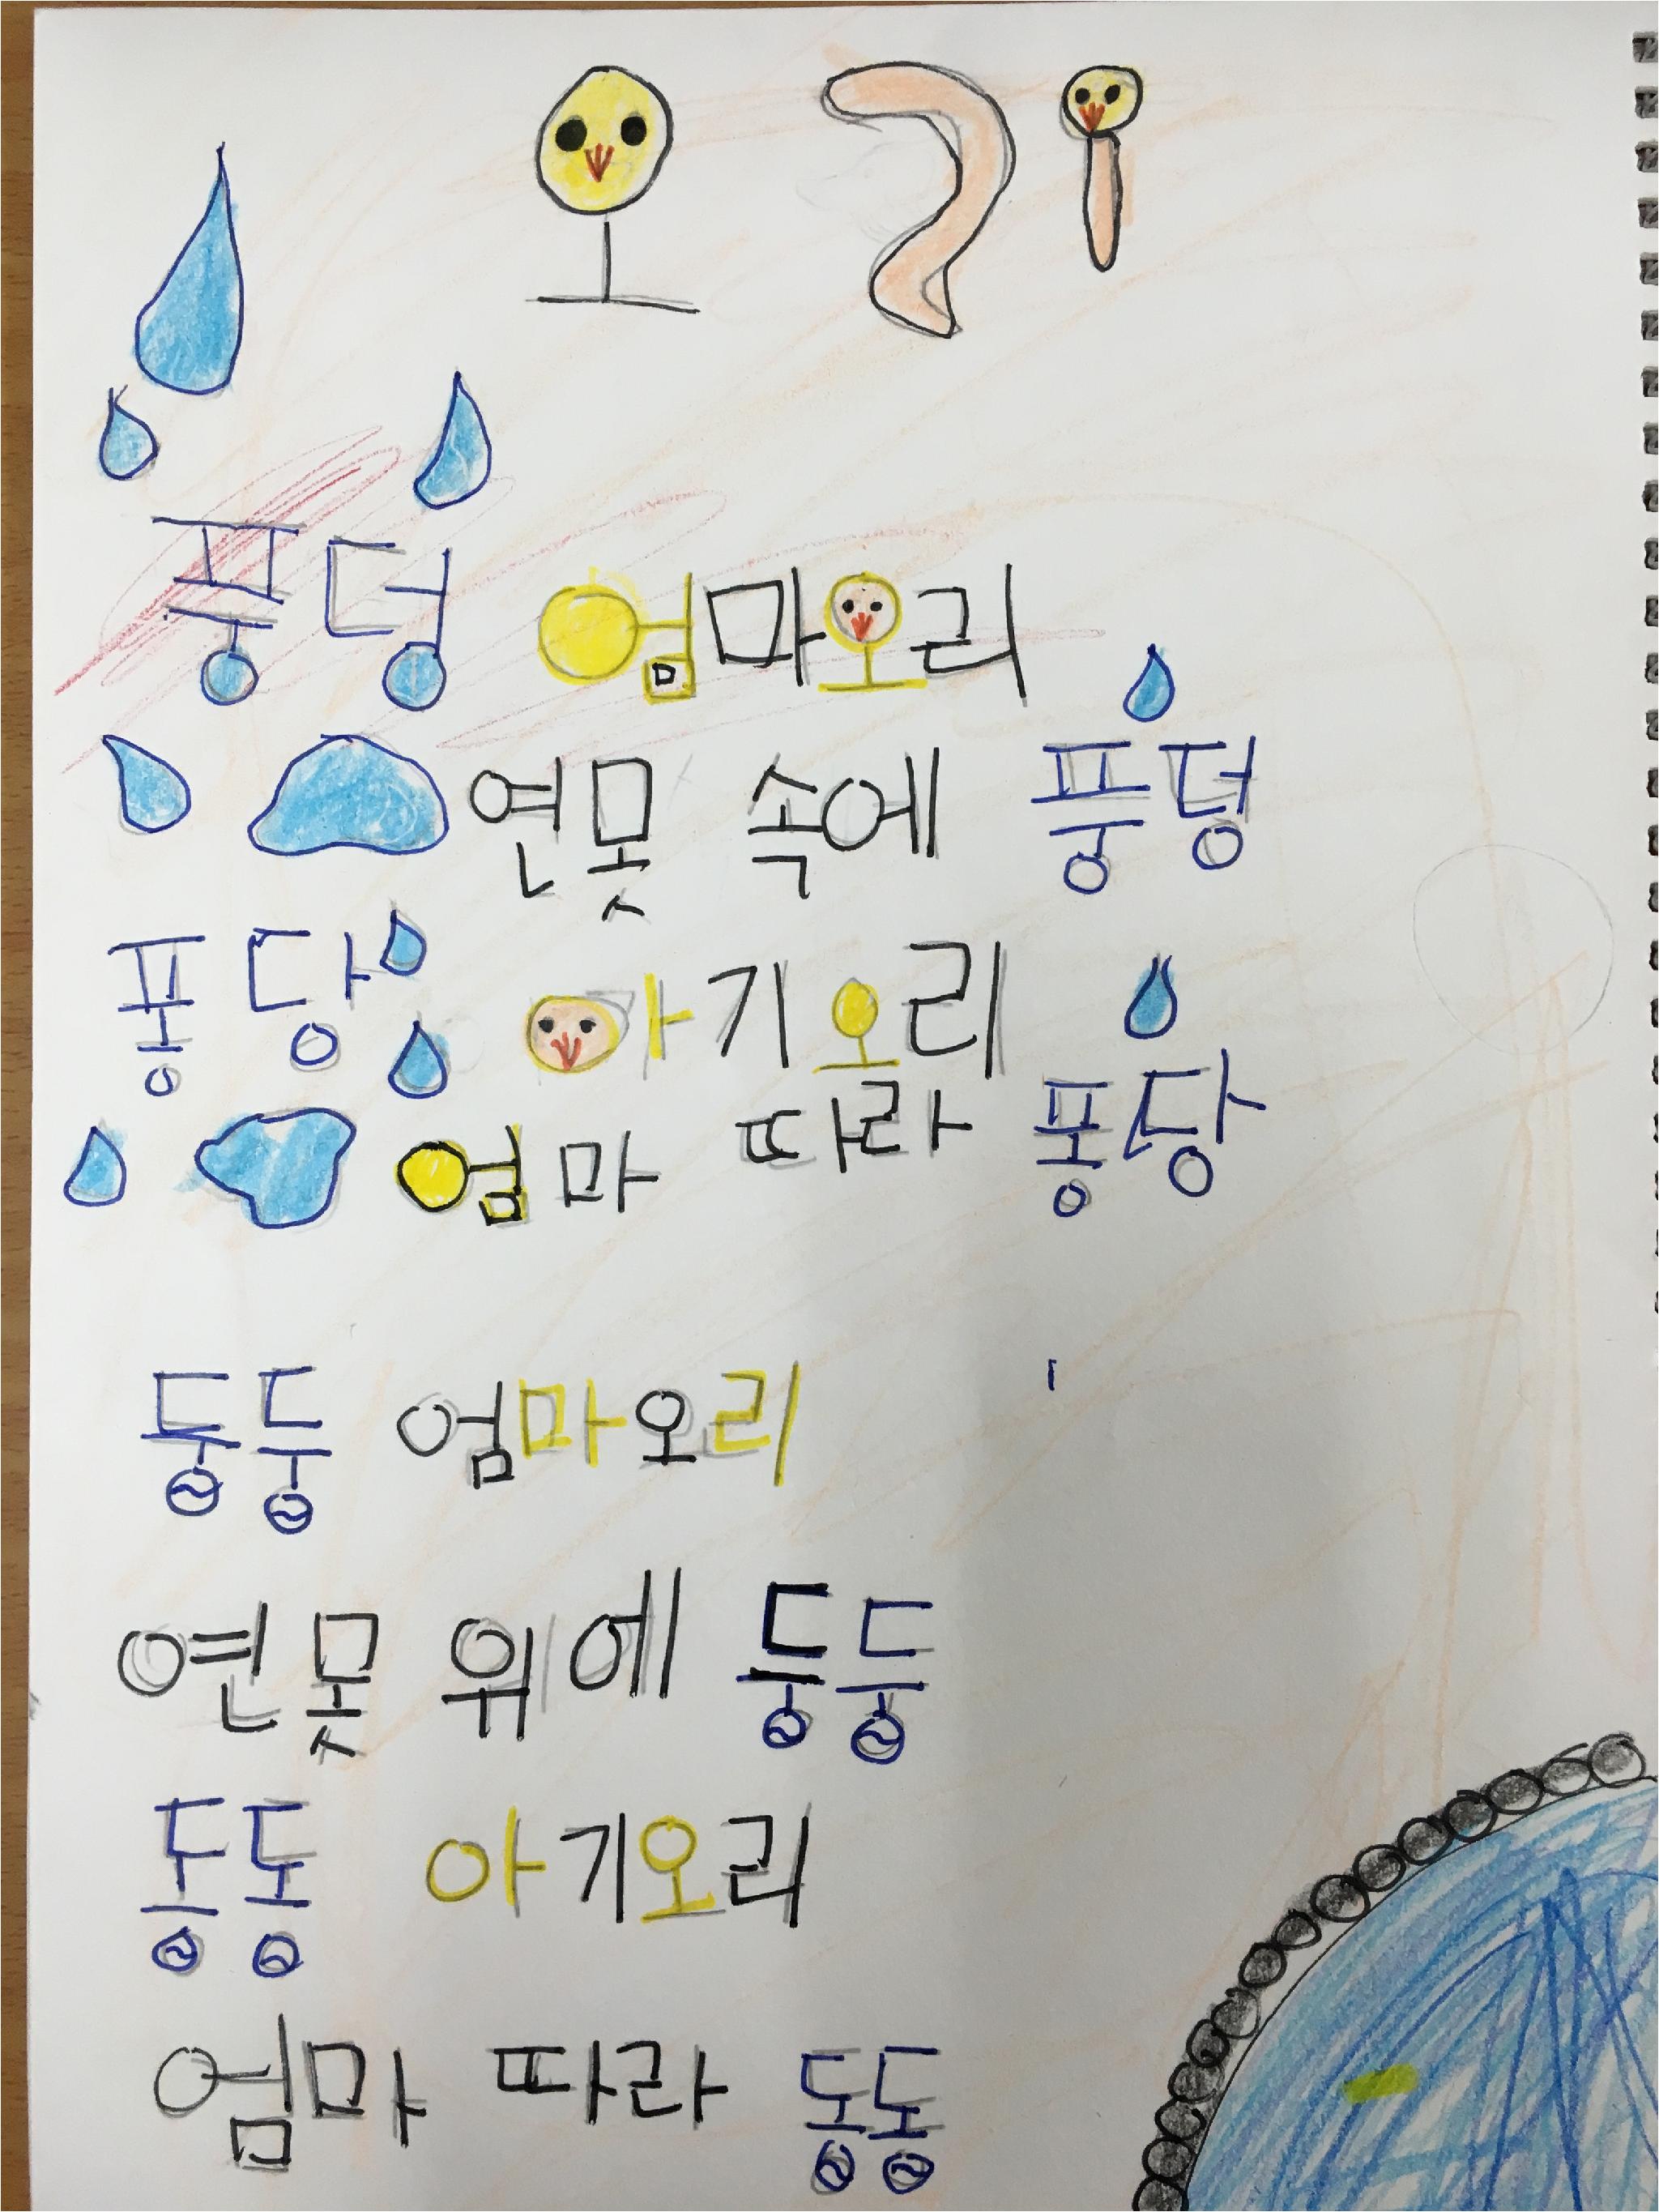 오리
풍덩 엄마오리
연못 속에 풍덩
퐁당 아기오리
엄마 따라 퐁당
둥둥 엄마오리
연못 위에 둥둥
동동 아기오리
엄마 따라 동동